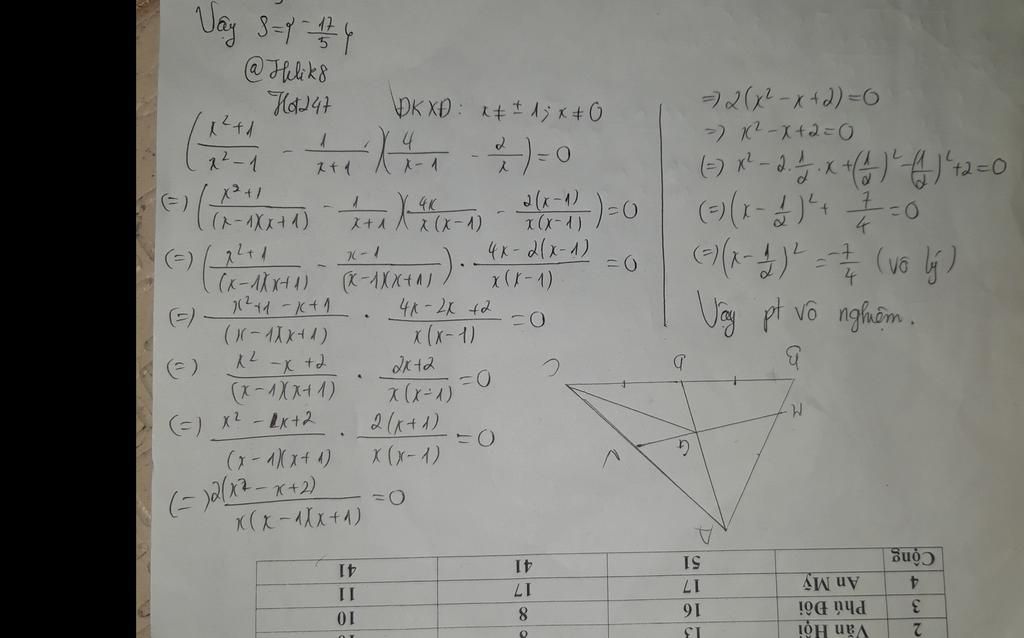 Vậy S = { -17/5 }
@Helik8
Hd247
ĐKXĐ: x ≠ ± 1; x ≠ 0
( (x²+1)/(x²-1) - 1/(x+1) )( 4/(x-1) - 2/x ) = 0
(=) ( (x²+1)/((x-1)(x+1)) - 1/(x+1) )( 4x/(x(x-1)) - 2(x-1)/(x(x-1)) ) = 0
(=) ( (x²+1)/((x-1)(x+1)) - (x-1)/((x-1)(x+1)) ) . (4x-2(x-1))/(x(x-1)) = 0
(=) (x²+1-x+1)/((x-1)(x+1)) . (4x-2x+2)/(x(x-1)) = 0
(=) (x²-x+2)/((x-1)(x+1)) . (2x+2)/(x(x-1)) = 0
(=) (x²-x+2)/((x-1)(x+1)) . 2(x+1)/(x(x-1)) = 0
(=) 2(x²-x+2)/(x(x-1)(x+1)) = 0
=> 2(x²-x+2)=0
=> x²-x+2=0
(=) x²-2.1/2.x+(1/2)²-(1/2)²+2=0
(=) (x-1/2)²+7/4=0
(=) (x-1/2)²=-7/4 (vô lý)
Vậy pt vô nghiệm.
C D B
M
G
N
A
Cộng 51 41 41
4 An Mỹ 17 17 11
3 Phú Đôi 16 8 10
2 Vân Hội 13 8